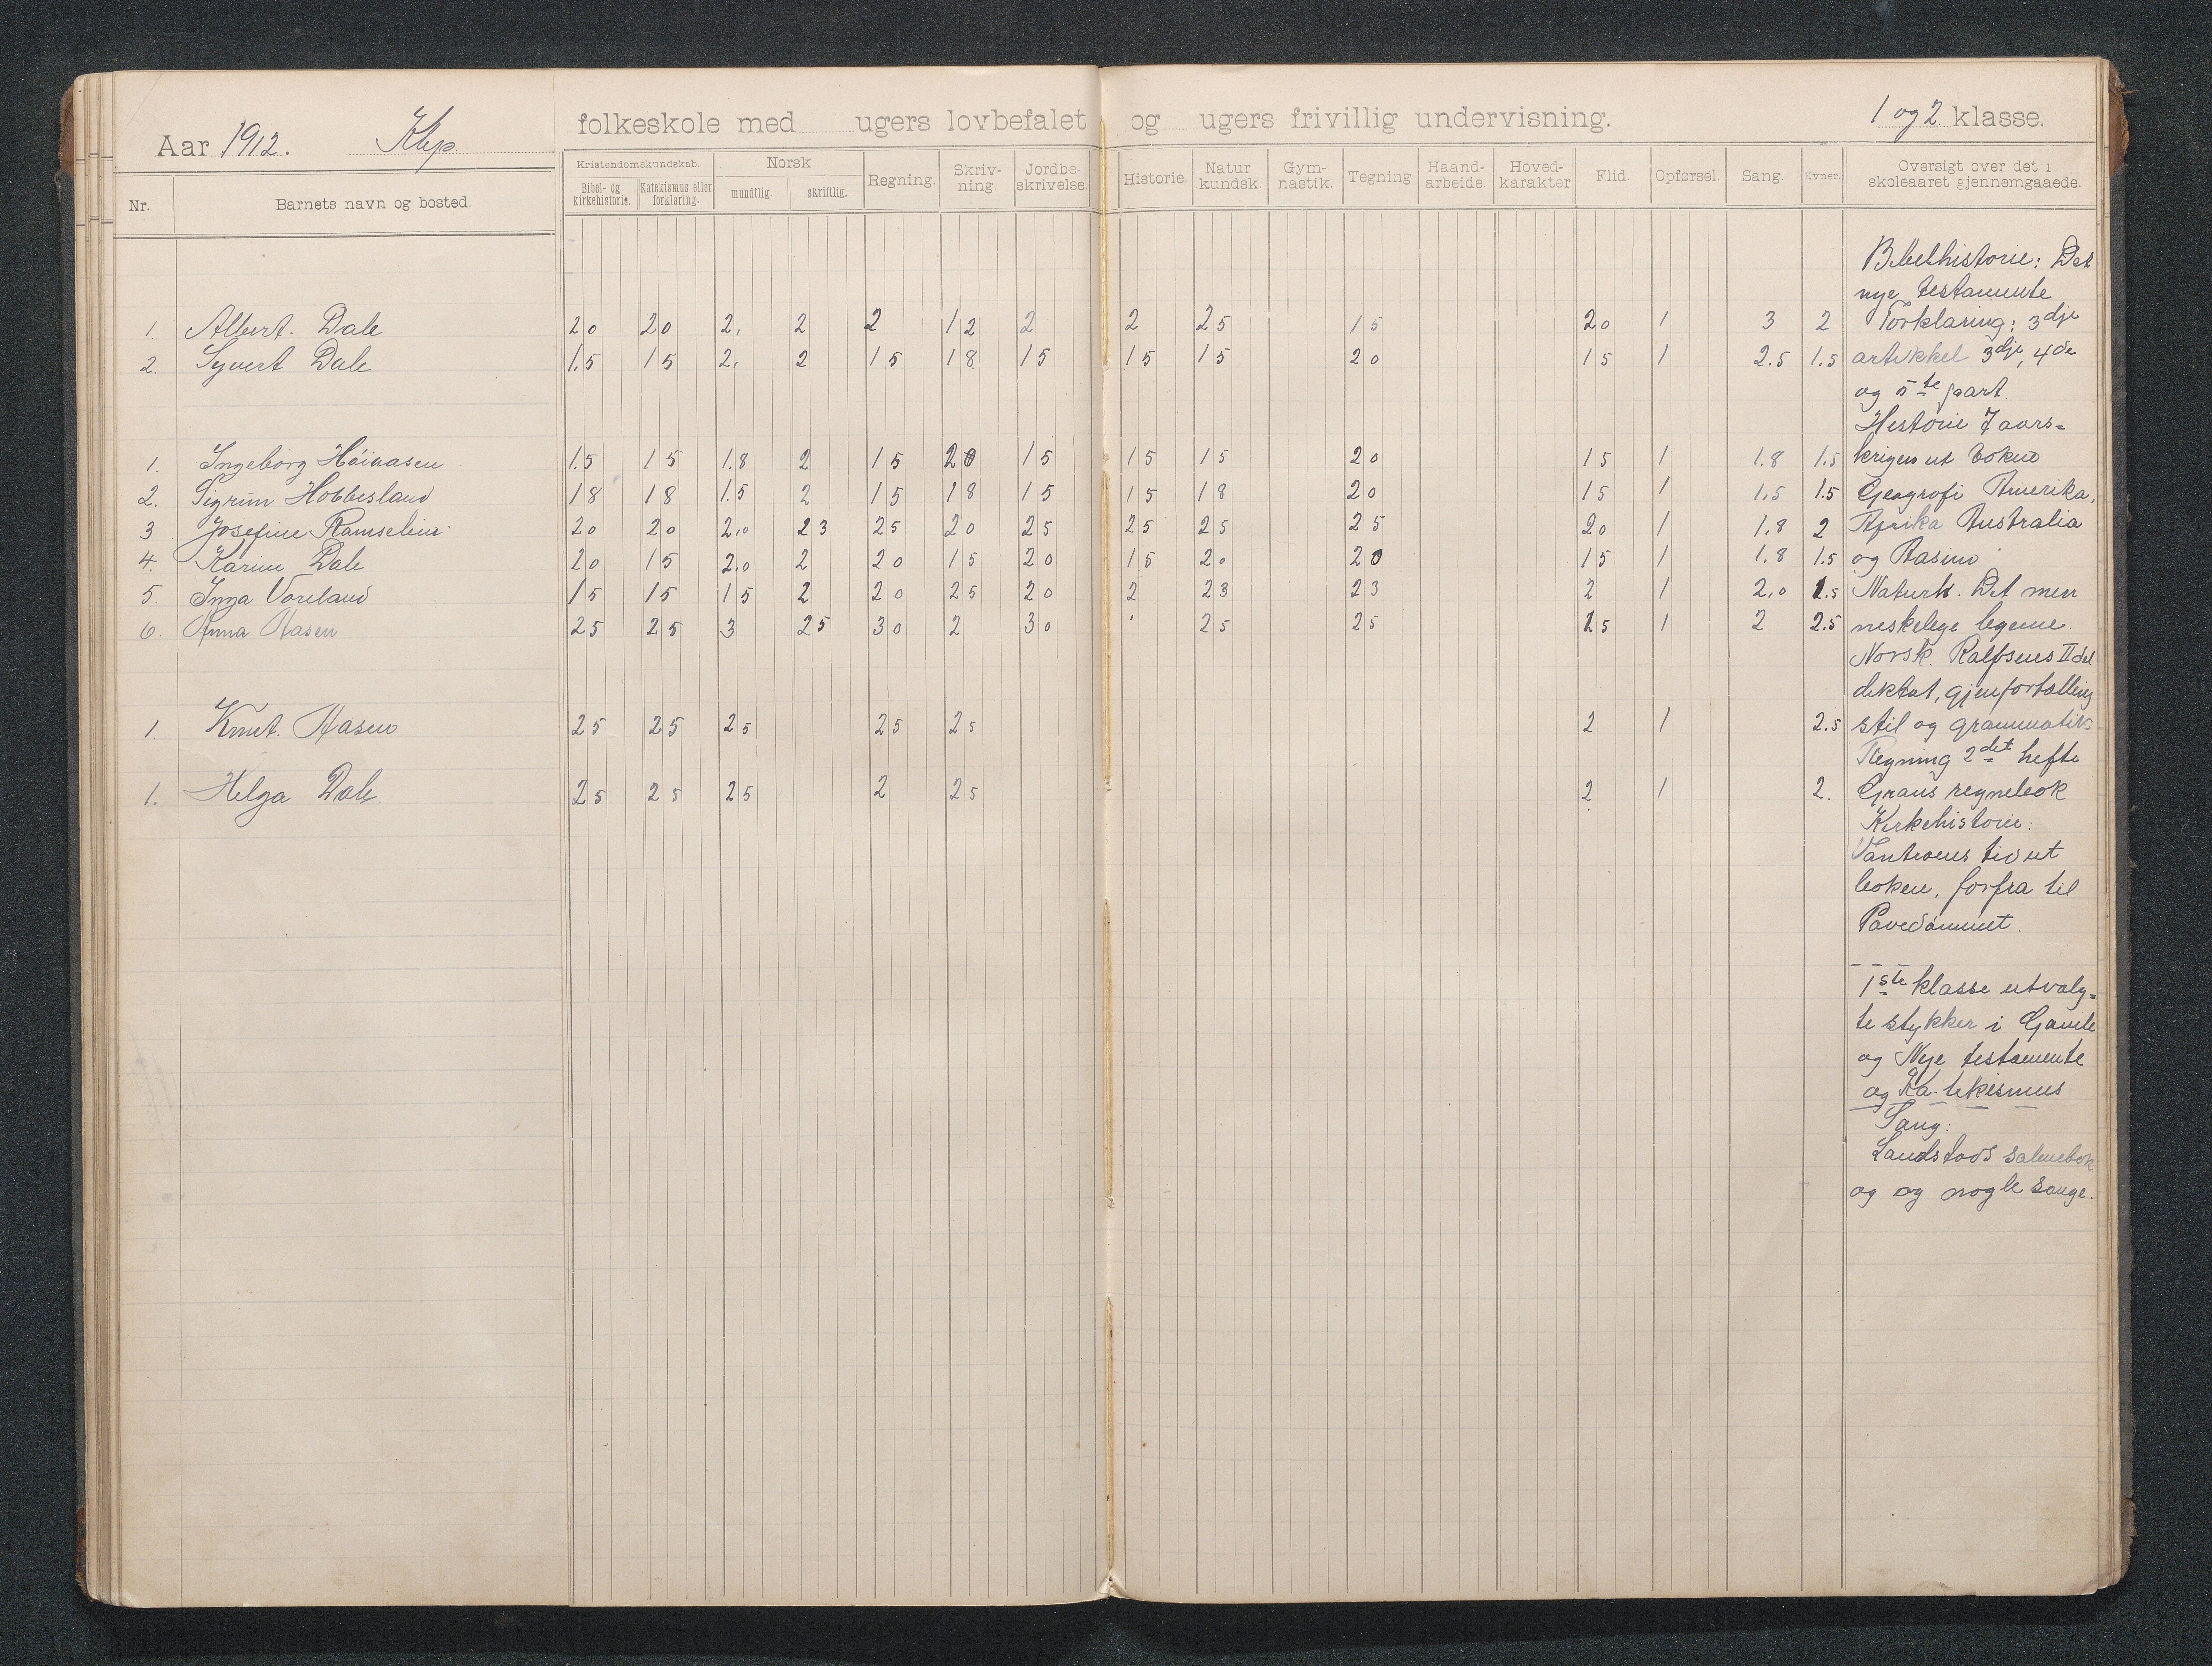 Aar 1912. Klep folkeskole med ugers lovbefalet og ugers frivillig undervisning. 1 og 2 klasse.
Nr. Barnets navn og bosted. Kristendomskundskab. Bibel- og kirkehistorie. Katekismus eller forklaring. Norsk mundtlig. skriftlig. Regning. Skriv-ning. Jordbe-skrivelse. Historie. Natur kundsk. Gym-nastik. Tegning Haand-arbeide. Hoved-karakter Flid. Opførsel. Sang. Evner. Oversigt over det i skoleaaret gjennemgaaede.
Bibelhistorie: Det
nye testamente
1. Albert. Dale 20 20 2. 2 2 12 2 2 25 15 20 1 3 2 Forklaring: 3dje
2. Syvert Dale 1.5 15 2. 2 15 18 15 15 15 20 15 1 2.5 1.5 artikkel 3dje, 4de
og 5te part.
Historie 7 aars=
1. Ingeborg Høiaasen 1.5 15 1.8 2 15 20 15 15 15 20 15 1 1.8 1.5 krigen ut boken
2. Sigrun Hobbesland 18 18 1.5 2 15 18 15 15 18 20 15 1 1.5 1.5 Geografi Amerika,
3 Josefine Ramselien 20 20 2.0 23 25 20 25 25 25 25 20 1 1.8 2 Afrika Australia
4. Karine Dale 20 15 2.0 2 20 15 20 15 20 20 15 1 1.8 1.5 og Aasien
5. Inga Voreland 15 15 15 2 20 25 20 2 23 23 2 1 2.0 1.5 Naturk. Det men
6. Anna Aasen 25 25 3 25 30 2 30 25 25 25 1 2 2.5 neskelege legeme.
Norsk. Rolfsens II del
diktat, gjenfortælling
1. Knut. Aasen 25 25 25 25 25 2 1 2.5 stil og grammatik.
Regning 2det hefte
1. Helga Dale. 25 25 25 2 25 2 1 2. Grans regnebok
Kirkehistorie:
Vantroens tid ut
boken, forfra til
Pavedømmet.
1ste klasse utvalg=
te stykker i Gamle
og Nye testamente
og Ka-tekismus
Sang:
Landstads salmebok
og og nogle sange.